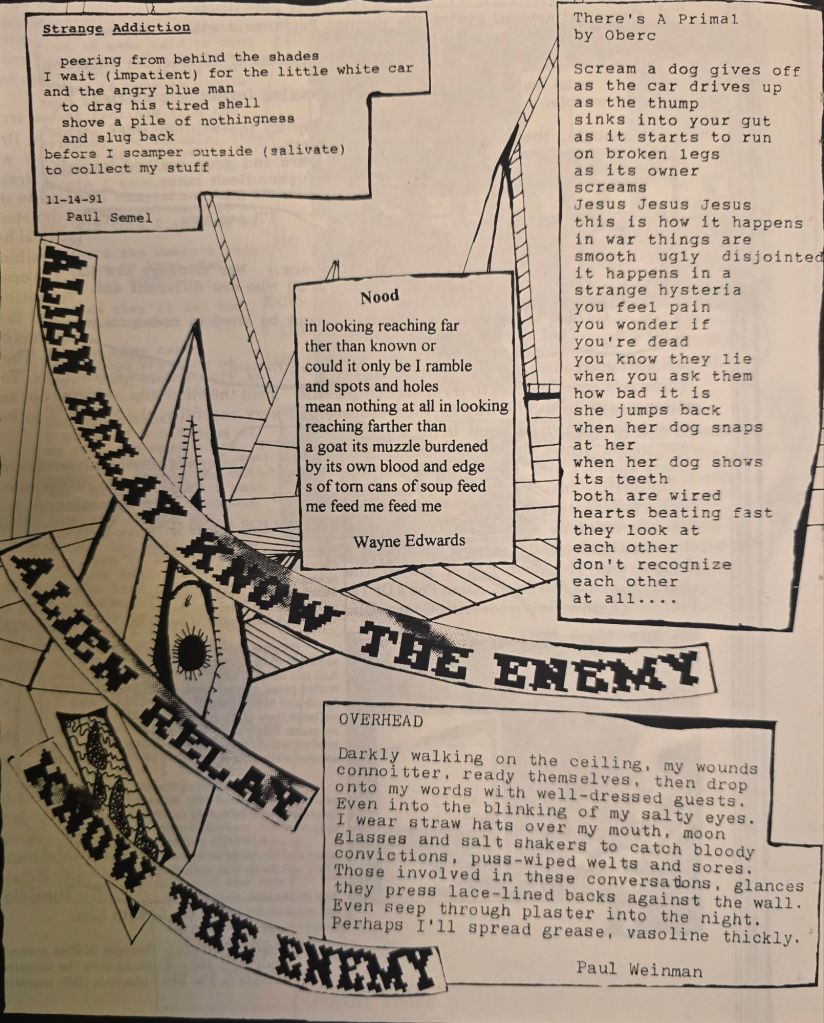 Strange Addiction
peering from behind the shades
I wait (impatient) for the little white car
and the angry blue man
to drag his tired shell
shove a pile of nothingness
and slug back
before I scamper outside (salivate)
to collect my stuff
11-14-91
Paul Semel
There's A Primal
by Oberc
Scream a dog gives off
as the car drives up
as the thump
sinks into your gut
as it starts to run
on broken legs
as its owner
screams
Jesus Jesus Jesus
this is how it happens
in war things are
smooth ugly disjointed
it happens in a
strange hysteria
you feel pain
you wonder if
you're dead
you know they lie
when you ask them
how bad it is
she jumps back
when her dog snaps
at her
when her dog shows
its teeth
both are wired
hearts beating fast
they look at
each other
don't recognize
each other
at all....
Nood
in looking reaching far
ther than known or
could it only be I ramble
and spots and holes
mean nothing at all in looking
reaching farther than
a goat its muzzle burdened
by its own blood and edge
s of torn cans of soup feed
me feed me feed me
Wayne Edwards
ALIEN RELAY KNOW THE ENEMY
ALIEN RELAY
KNOW THE ENEMY
OVERHEAD
Darkly walking on the ceiling, my wounds
connoitter, ready themselves, then drop
onto my words with well-dressed guests.
Even into the blinking of my salty eyes.
I wear straw hats over my mouth, moon
glasses and salt shakers to catch bloody
convictions, puss-wiped welts and sores.
Those involved in these conversations, glances
they press lace-lined backs against the wall.
Even seep through plaster into the night.
Perhaps I'll spread grease, vasoline thickly.
Paul Weinman